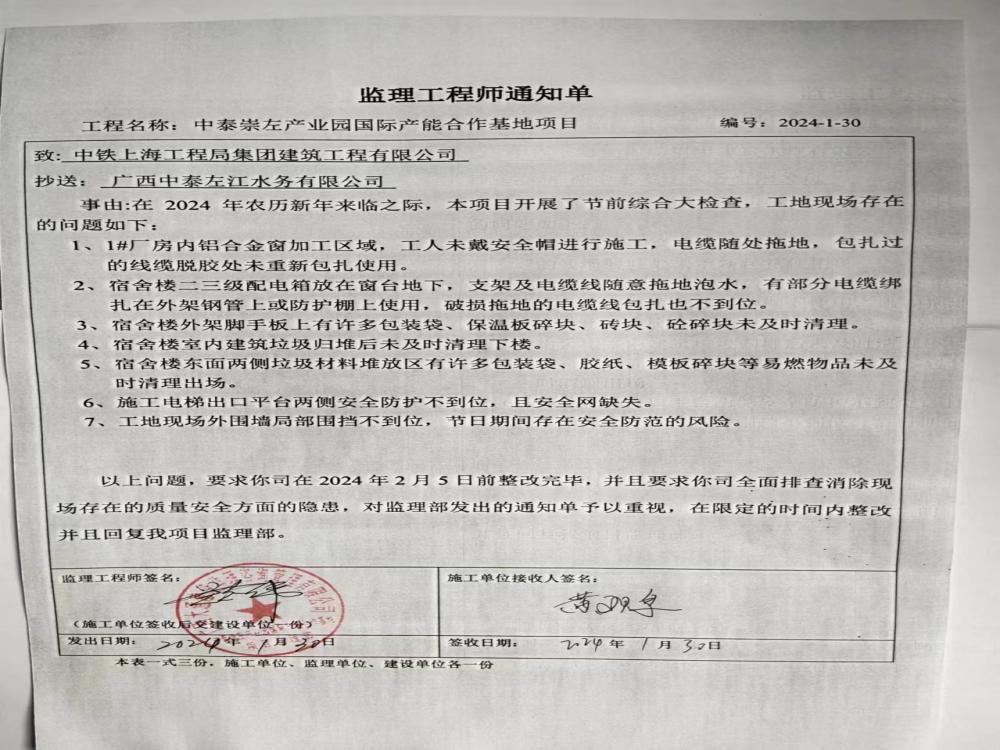 监理工程师通知单
工程名称：中泰崇左产业园国际产能合作基地项目 编号：2024-1-30
致：中铁上海工程局集团建筑工程有限公司
抄送：广西中泰左江水务有限公司
事由:在 2024 年农历新年来临之际，本项目开展了节前综合大检查，工地现场存在
的问题如下：
1、1#厂房内铝合金窗加工区域，工人未戴安全帽进行施工，电缆随处拖地，包扎过
的线缆脱胶处未重新包扎使用。
2、宿舍楼二三级配电箱放在窗台地下，支架及电缆线随意拖地泡水，有部分电缆绑
扎在外架钢管上或防护棚上使用，破损拖地的电缆线包扎也不到位。
3、宿舍楼外架脚手板上有许多包装袋、保温板碎块、砖块、砼碎块未及时清理。
4、宿舍楼室内建筑垃圾归堆后未及时清理下楼。
5、宿舍楼东面两侧垃圾材料堆放区有许多包装袋、胶纸、模板碎块等易燃物品未及
时清理出场。
6、施工电梯出口平台两侧安全防护不到位，且安全网缺失。
7、工地现场外围墙局部围挡不到位，节日期间存在安全防范的风险。
以上问题，要求你司在 2024 年 2 月 5 日前整改完毕，并且要求你司全面排查消除现
场存在的质量安全方面的隐患，对监理部发出的通知单予以重视，在限定的时间内整改
并且回复我项目监理部。
监理工程师签名： 施工单位接收人签名：
（施工单位签收后交建设单位一份）
发出日期： 2024年 1月 30日 签收日期： 2024年 1月 30日
本表一式三份，施工单位、监理单位、建设单位各一份